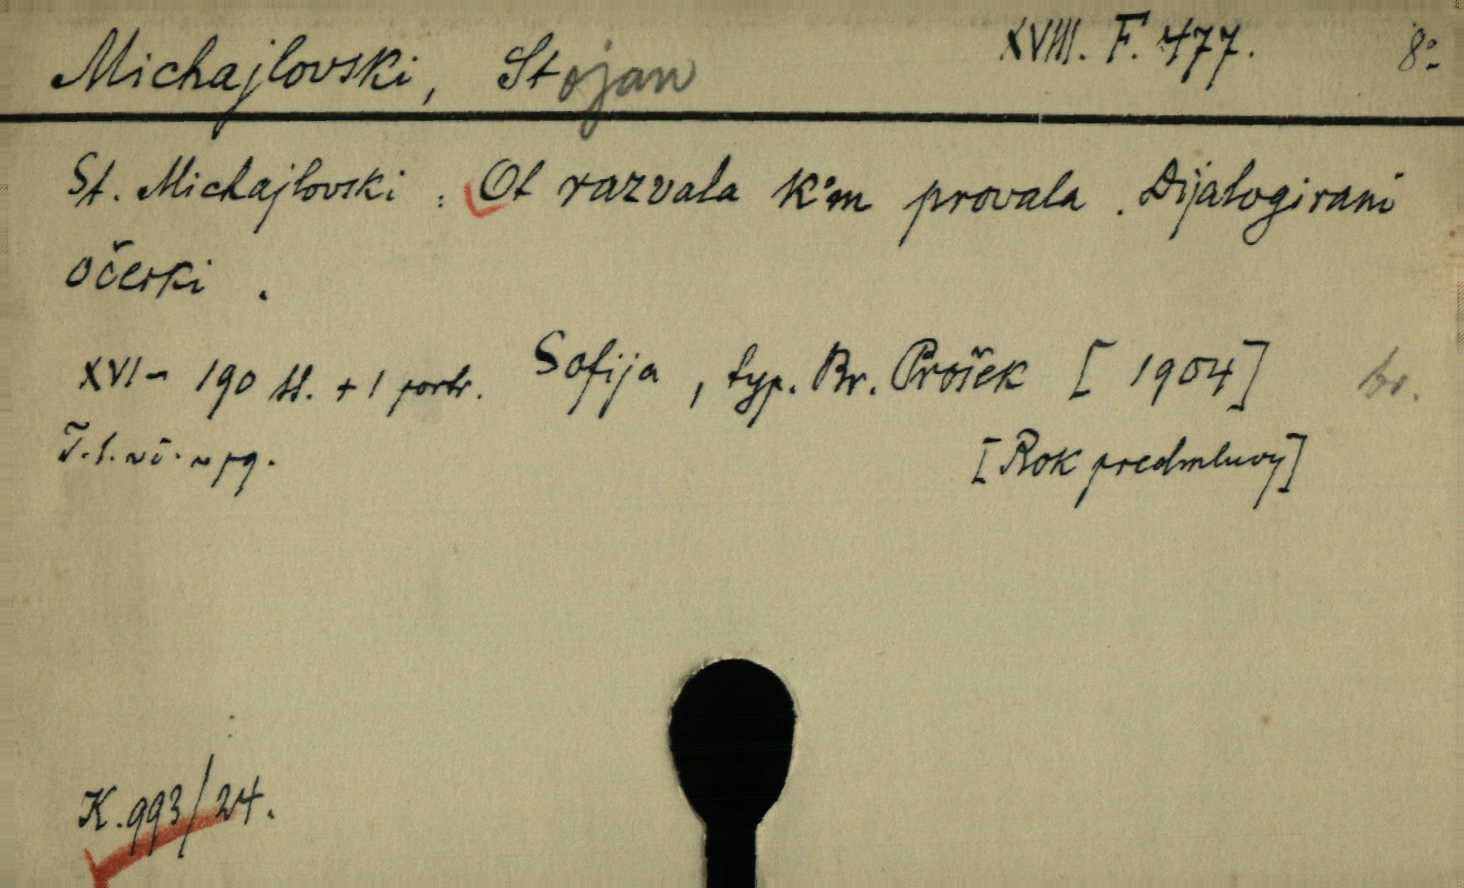 Michajlovski, Stojan XVIII. F. 477. 8°
St. Michajlovski : Ot razvala k'm provala. Dijalogirani
očerki.
XVI - 190 st. + 1 portr. Sofija, typ. Br. Prošek [1904] br.
[Rok předmluvy]
K. 993/24.